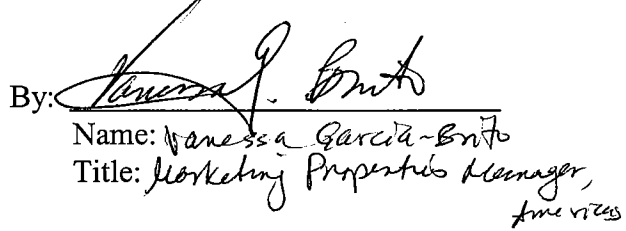 By: Vanessa G. Brito
Name: Vanessa Garcia-Brito
Title: Marketing Properties Manager,
Americas